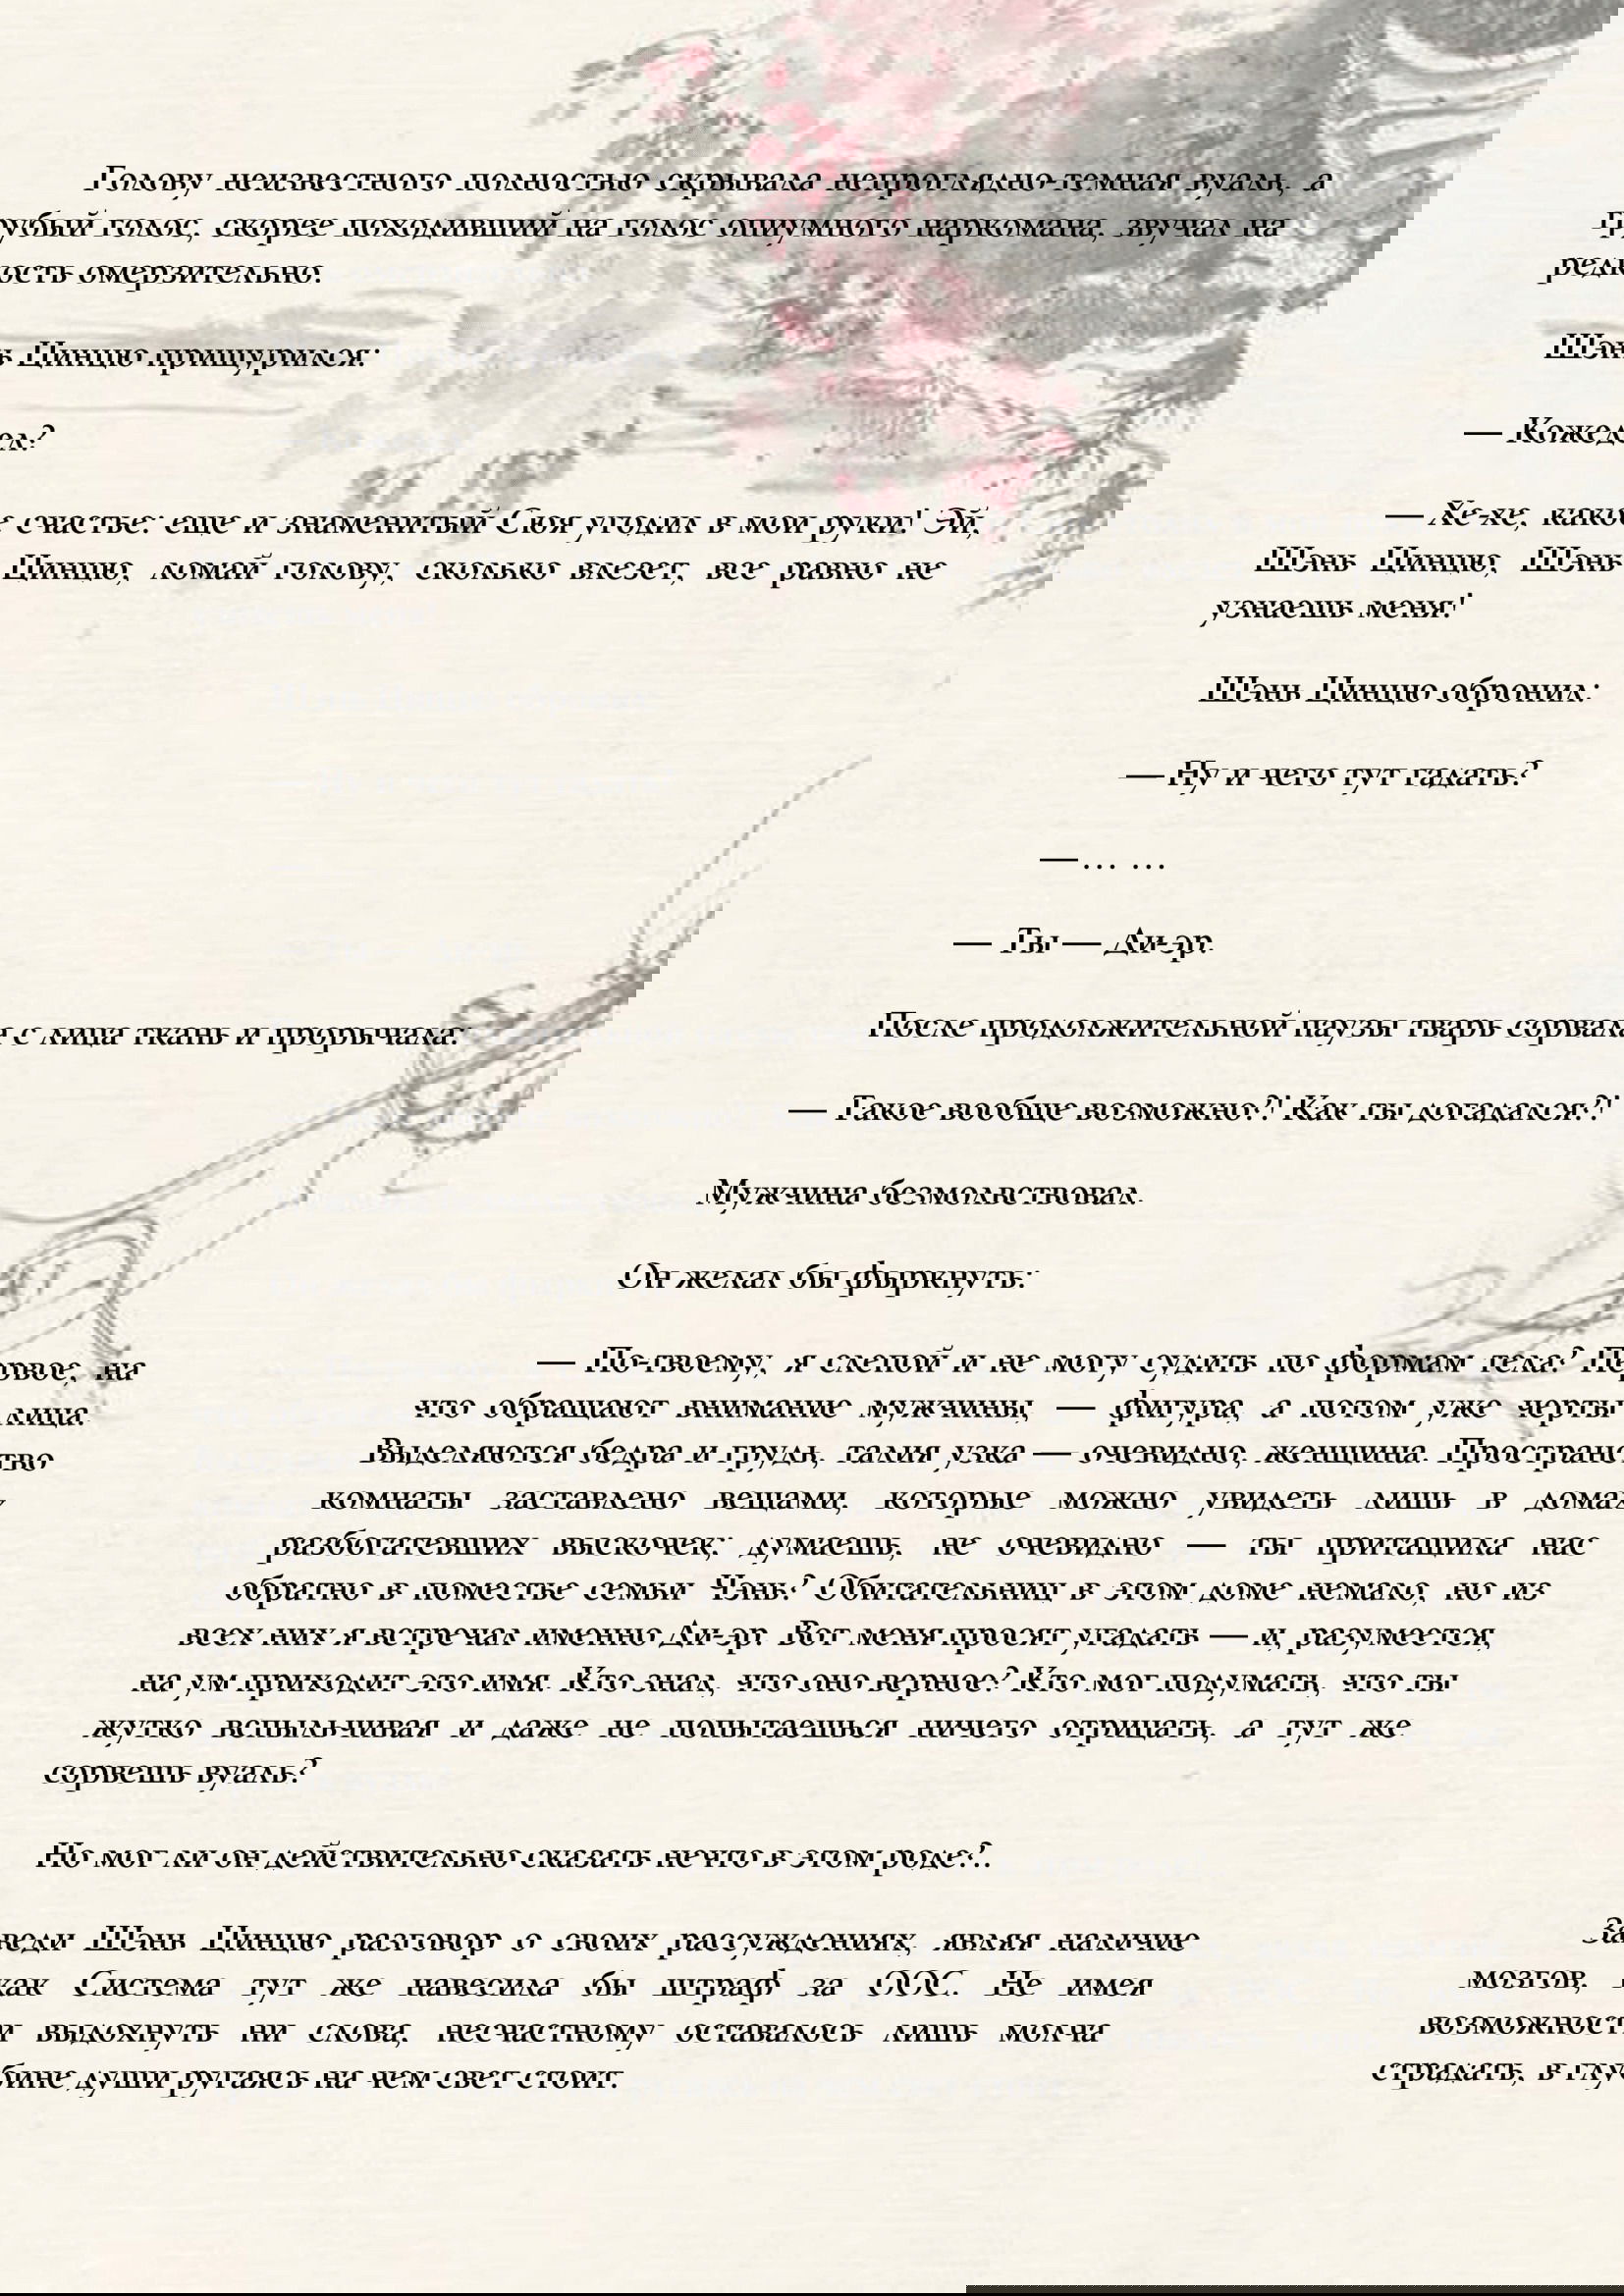 Голову неизвестного полностью скрывала непроглядно-темная вуаль, а
грубый голос, скорее походивший на голос опиумного наркомана, звучал на
редкость омерзительно.
Шэнь Цинцю прищурился:
— Кожедел?
— Хе-хе, какое счастье: еще и знаменитый Сюя угодил в мои руки! Эй,
Шэнь Цинцю, Шэнь Цинцю, ломай голову, сколько влезет, все равно не
узнаешь меня!
Шэнь Цинцю обронил:
— Ну и чего тут гадать?
— … …
— Ты — Ди-эр.
После продолжительной паузы тварь сорвала с лица ткань и прорычала:
— Такое вообще возможно?! Как ты догадался?!
Мужчина безмолвствовал.
Он желал бы фыркнуть:
— По-твоему, я слепой и не могу судить по формам тела? Первое, на
что обращают внимание мужчины, — фигура, а потом уже черты лица.
Выделяются бедра и грудь, талия узка — очевидно, женщина. Пространство
комнаты заставлено вещами, которые можно увидеть лишь в домах
разбогатевших выскочек; думаешь, не очевидно — ты притащила нас
обратно в поместье семьи Чэнь? Обитательниц в этом доме немало, но из
всех них я встречал именно Ди-эр. Вот меня просят угадать — и, разумеется,
на ум приходит это имя. Кто знал, что оно верное? Кто мог подумать, что ты
жутко вспыльчивая и даже не попытаешься ничего отрицать, а тут же
сорвешь вуаль?
Но мог ли он действительно сказать нечто в этом роде?..
Заведи Шэнь Цинцю разговор о своих рассуждениях, являя наличие
мозгов, как Система тут же навесила бы штраф за ООС. Не имея
возможности выдохнуть ни слова, несчастному оставалось лишь молча
страдать, в глубине души ругаясь на чем свет стоит.